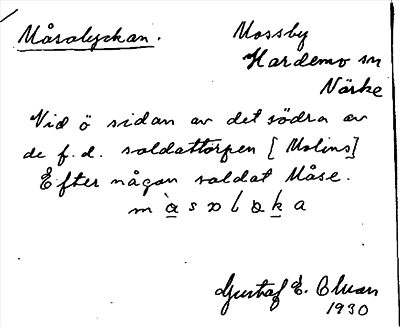 Måsalyckan.
Mossby
Hardemo sn
Närke
Vid ö sidan av det södra av
de f.d. soldattorpen [Molins]
Efter någon soldat Måse.
Gustaf E.
1930